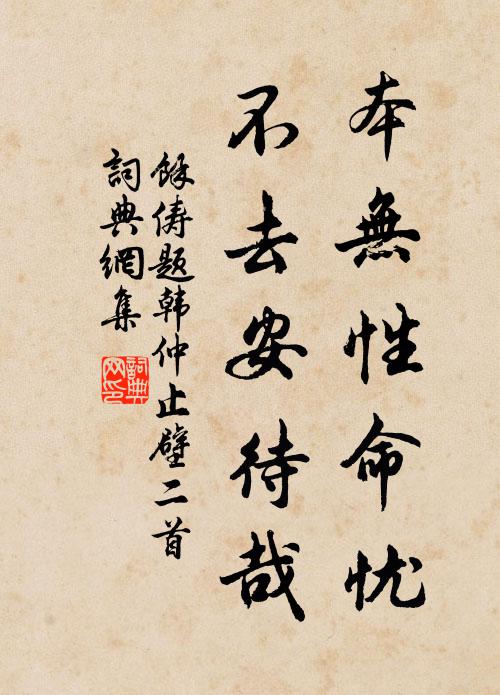 本無性命忧
不去安待哉
餘俦题韩仲止壁二首
詞典網集
詞典网印